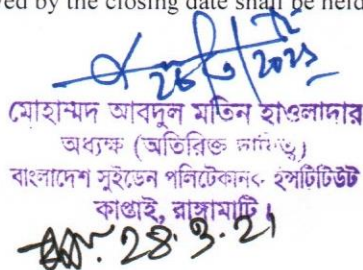 ved by the closing date shall be held
মোহাম্মদ আবদুল মতিন হাওলাদার
অধ্যক্ষ (অতিরিক্ত দায়িত্ব)
বাংলাদেশ সুইডেন পলিটেকনিক ইন্সটিটিউট
কাপ্তাই, রাঙ্গামাটি।
28.3.21